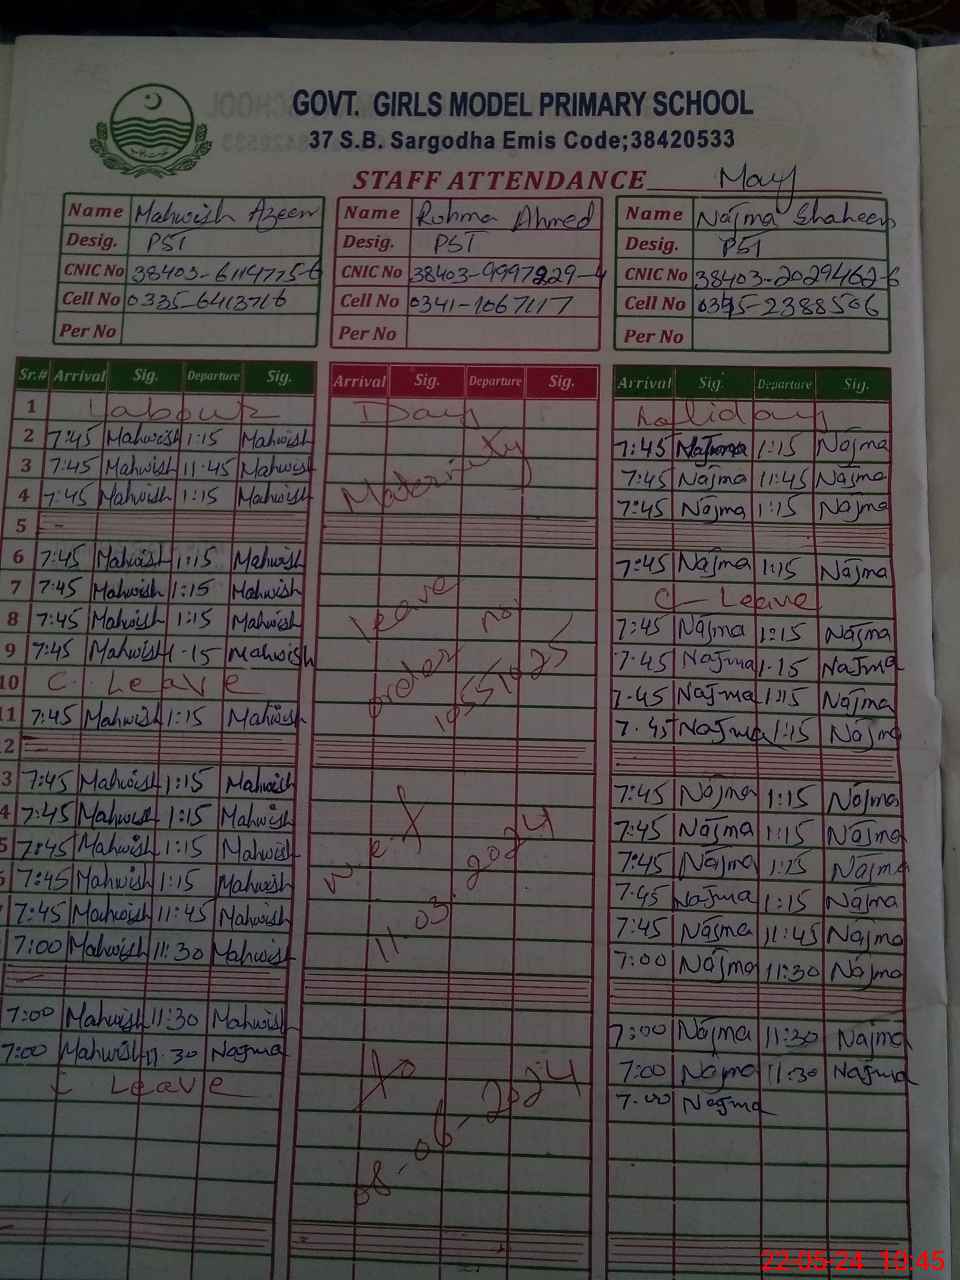 GOVT. GIRLS MODEL PRIMARY SCHOOL
37 S.B. Sargodha Emis Code;38420533
STAFF ATTENDANCE May
Name Mahwish Azeem Name Rohma Ahmed Name Najma Shaheen
Desig. PST Desig. PST Desig. PST
CNIC No 38403-6119775-6 CNIC No 38403-9997229-4 CNIC No 38403-2029462-6
Cell No 0335-6413716 Cell No 0341-1067117 Cell No 0345-2388506
Per No Per No Per No
Sr.# Arrival Sig. Departure Sig. Arrival Sig. Departure Sig. Arrival Sig. Departure Sig.
1 Labour Day holiday
2 7:45 Mahwish 1:15 Mahwish 7:45 Najma 1:15 Najma
3 7:45 Mahwish 11:45 Mahwish Maternity 7:45 Najma 11:45 Najma
4 7:45 Mahwish 1:15 Mahwish 7:45 Najma 1:15 Najma
5
6 7:45 Mahwish 1:15 Mahwish 7:45 Najma 1:15 Najma
7 7:45 Mahwish 1:15 Mahwish leave C-Leave
8 7:45 Mahwish 1:15 Mahwish no. 7:45 Najma 1:15 Najma
9 7:45 Mahwish 1-15 Mahwish order 7-45 Najma 1-15 Najma
10 C. Leave 10551025 7-45 Najma 1:15 Najma
11 7:45 Mahwish 1:15 Mahwish 7.45 Najma 1:15 Najma
2
3 7:45 Mahwish 1:15 Mahwish 7:45 Najma 1:15 Najma
4 7:45 Mahwish 1:15 Mahwish 7:45 Najma 1:15 Najma
5 7:45 Mahwish 1:15 Mahwish w.e.f 7:45 Najma 1:15 Najma
7:45 Mahwish 1:15 Mahwish 11.03.2024 7-45 Najma 1:15 Najma
7:45 Mahwish 11:45 Mahwish 7:45 Najma 11:45 Najma
7:00 Mahwish 11:30 Mahwish 7:00 Najma 11:30 Najma
7:00 Mahwish 11:30 Mahwish 7:00 Najma 11:30 Najma
7:00 Mahwish 11.30 Najma to 7:00 Najma 11:30 Najma
C Leave 08-06-2024 7.00 Najma
22-05-24 10:45